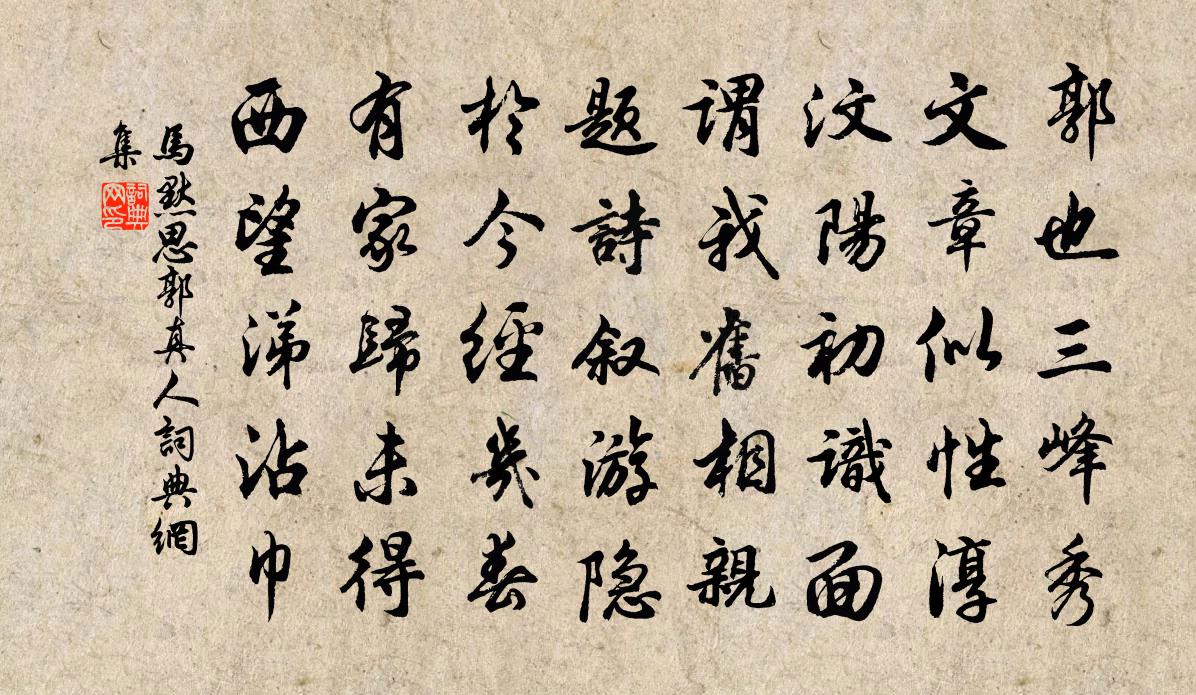 郭也三峰秀
文章似性淳
汶陽初識面
謂我舊相親
題詩叙游隐
於今經幾春
有家歸未得
西望涕沾巾
馬默思郭真人詞典網
集
詞典
网印